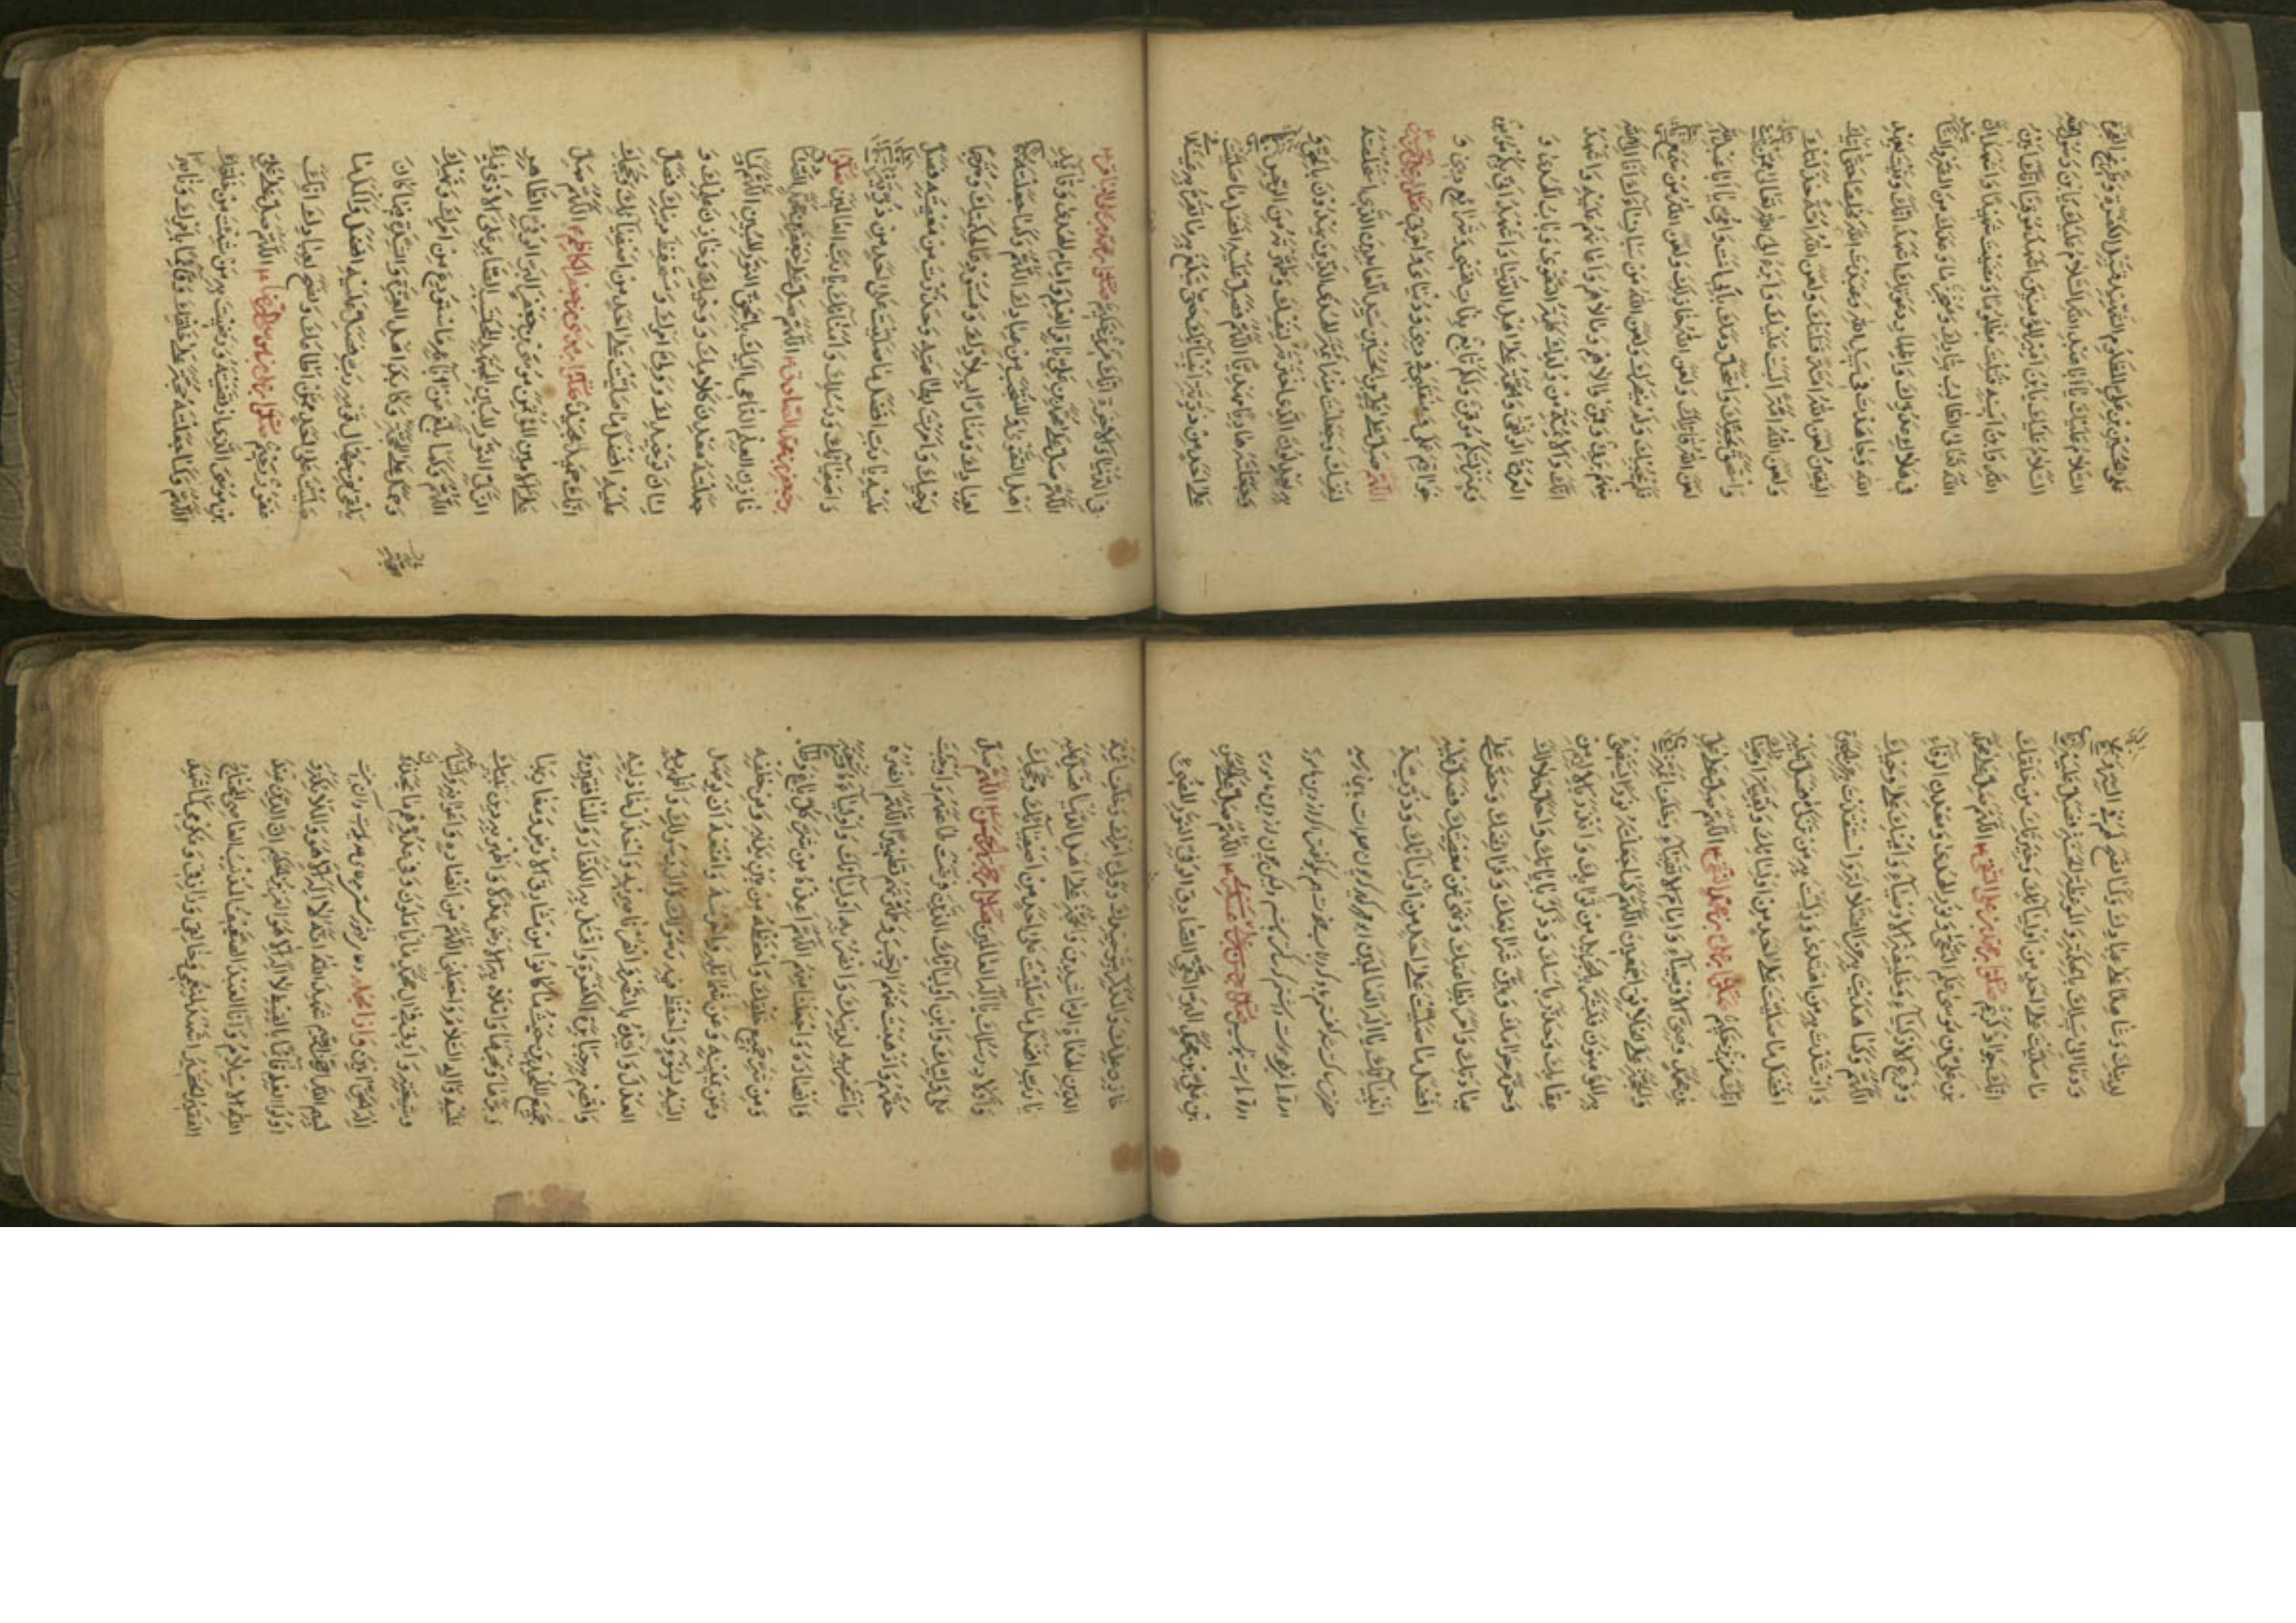 على الحسين بن علي المظلوم الشهيد قتيل الكفرة وطريح الفجرة
السلام عليك يا ابا عبد الله السلام عليك يا بن رسول الله
السلام عليك يا بن امير المؤمنين اشهد موقنا انك امين
الله وابن امينه قتلت مظلوما ومضيت شهيدا واشهد ان
الله تعالى الطالب بثارك ومنجز ما وعدك من النصر والتاييد
في هلاك عدوك واظهار دعوتك واشهد انك وفيت بعهد
الله وجاهدت في سبيل الله وعبدت الله مخلصا حتى اتيك
اليقين لعن الله امة قتلتك ولعن الله امة خذلتك و
لعن الله امة البت عليك وابرء الى الله تعالى ممن
واستخف بحقك واستحل دمك بابي انت وامي يا ابا عبد الله
لعن الله قاتلك ولعن الله خاذلك ولعن الله من سمع
فلم يجبك ولم ينصرك ولعن الله من سبا نساءك انا الى الله
منهم بريء وممن والاهم ومالاهم عليه واشهد
انك والائمة من ولدك كلمة التقوى وباب الهدى و
العروة الوثقى والحجة على اهل الدنيا واشهد اني بكم مؤمن
وبمنزلتكم موقن ولكم تابع بذات نفسي وشرايع ديني و
خواتيم عملي ومنقلبي في ديني ودنياي واخرتي
اللهم صل على علي بن الحسين سيد العابدين الذي استخلصته
لنفسك وجعلت منه ائمة الهدى الذين يهدون بالحق و
به يعدلون الذي اخترته لنفسك وطهرته من الرجس
وجعلته هاديا مهديا اللهم فصل عليه افضل ما صليت
على احد من ذرية انبيائك حتى تبلغ به ما تقر به عينه
في الدنيا والاخرة انك عزيز حكيم صلوة بر محمد بن علي الباقر
اللهم صل على محمد بن علي باقر العلم وامام الهدى وقائد
اهل التقوى والمنتجب من عبادك اللهم وكما جعلته علما
لعبادك ومنارا لبلادك ومستودعا لحكمتك ومترجما
لوحيك وامرت بطاعته وحذرت من معصيته فصل
عليه يا رب افضل ما صليت على احد من ذرية انبيائك
واصفيائك ورسلك وامنائك يا رب العالمين صلوة
بر جعفر بن محمد الصادق اللهم صل على جعفر بن محمد الصادق
خازن العلم الداعي اليك بالحق النور المبين اللهم وكما
جعلته معدن كلامك ووحيك وخازن علمك و
لسان توحيدك وولي امرك ومستحفظ دينك فصل
عليه افضل ما صليت على احد من اصفيائك وحججك
انك حميد مجيد صلوة بر موسى بن جعفر الكاظم اللهم صل
على الامين المؤتمن موسى بن جعفر البر الوفي الطاهر
الزكي النور المبين المجتهد المحتسب الصابر على الاذى فيك
اللهم وكما بلغ عن ابائه ما استودع من امرك ونهيك
وحمل على المحجة وكابد اهل العزة والشدة فيما كان
يلقى من جهال قومه رب فصل عليه افضل واكمل ما
صليت على احد ممن اطاعك ونصح لعبادك انك
غفور رحيم صلوة بر علي بن موسى الرضا اللهم صل على علي
بن موسى الذي ارتضيته ورضيت به من شئت من خلقك
اللهم وكما جعلته حجة على خلقك وقائما بامرك وناصرا
لدينك وشاهدا على عبادك وكما نصح لهم في السر والعلانية
ودعا الى سبيلك بالحكمة والموعظة الحسنة فصل عليه افضل
ما صليت على احد من اوليائك وخيرتك من خلقك
انك جواد كريم صلوة بر محمد بن علي التقي اللهم صل على محمد
بن علي بن موسى علم التقى ونور الهدى ومعدن الوفاء
وفرع الازكياء وخليفة الاوصياء وامينك على وحيك
اللهم وكما هديت به من الضلالة واستنقذت به من الحيرة
وارشدت به من اهتدى وزكيت به من تزكى فصل عليه
افضل ما صليت على احد من اوليائك وبقية اوصيائك
انك عزيز حكيم صلوة بر علي بن محمد النقي اللهم صل على علي
بن محمد وصي الاوصياء وامام الاتقياء وخلف ائمة الدين
والحجة على الخلائق اجمعين اللهم كما جعلته نورا يستضيء
به المؤمنون فبشر بالجزيل من ثوابك وانذر بالاليم من
عقابك وحذر باسك وذكر باياتك واحل حلالك
وحرم حرامك وبين شرائعك وفرائضك وحض على
عبادتك وامر بطاعتك ونهى عن معصيتك فصل عليه
افضل ما صليت على احد من اوليائك وذرية
انبيائك يا اله العالمين
صلوة بر حسن بن علي العسكري اللهم صل على الحسن
بن علي بن محمد البر التقي الصادق الوفي النور المضيء
خازن علمك والمذكر بتوحيدك وولي امرك وخلف ائمة
الدين الهداة الراشدين والحجة على اهل الدنيا فصل عليه
يا رب افضل ما صليت على احد من اصفيائك وحججك
واولاد رسلك يا اله العالمين صلوة بر اللهم صل
على وليك وابن اوليائك الذين فرضت طاعتهم واوجبت
حقهم واذهبت عنهم الرجس وطهرتهم تطهيرا اللهم انصره
وانتصر به لدينك وانصر به اولياءك واولياءه وشيعته
وانصاره واجعلنا منهم اللهم اعذه من شر كل باغ وطاغ
ومن شر جميع خلقك واحفظه من بين يديه ومن خلفه
وعن يمينه وعن شماله واحرسه وامنعه ان يوصل
اليه بسوء واحفظ فيه رسولك وال رسولك واظهر به
العدل وايده بالنصر وانصر ناصريه واخذل خاذليه
واقصم به جبابرة الكفرة واقتل به الكفار والمنافقين و
جميع الملحدين حيث ما كانوا من مشارق الارض ومغاربها
وبرها وبحرها واملاء به الارض عدلا واظهر به دين نبيك
عليه واله السلام واجعلني اللهم من انصاره واعوانه واتباعه
وشيعته وارني في ال محمد ما ياملون وفي عدوهم ما يحذرون
اله الحق امين
بسم الله الرحمن الرحيم شهد الله انه لا اله الا هو والملائكة و
اولوا العلم قائما بالقسط لا اله الا هو العزيز الحكيم ان الدين عند
الله الاسلام وانا العبد الضعيف المذنب العاصي المحتاج
الفقير الحقير اشهد لمنعمي وخالقي ورازقي ومكرمي كما شهد